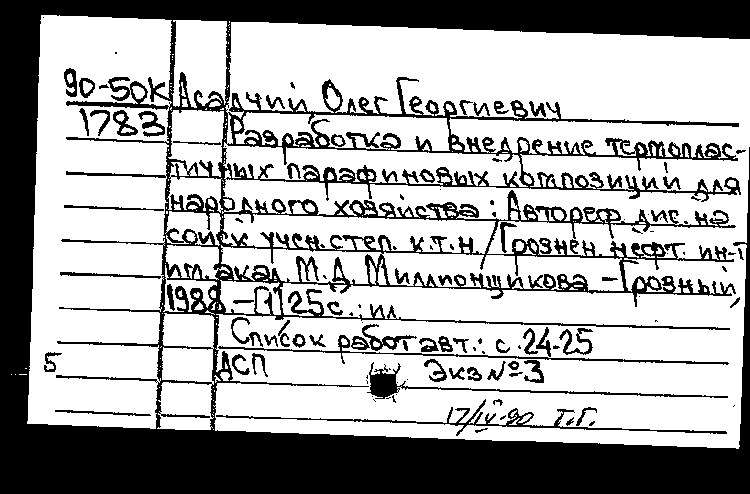 90-50К Асадчий Олег Георгиевич
1783 Разработка и внедрение термоплас-
тичных парафиновых композиций для
народного хозяйства : Автореф. дис. на
соиск учен. степ. к.т.н. / Грознен. нефт. ин-т
им. акад. М.Д. Миллионщикова. - Грозный,
1988. - [1] 25 с. : ил.
Список работ авт.: с. 24-25
5 ДСП Экз № 3
17/IV-90 Т.Г.